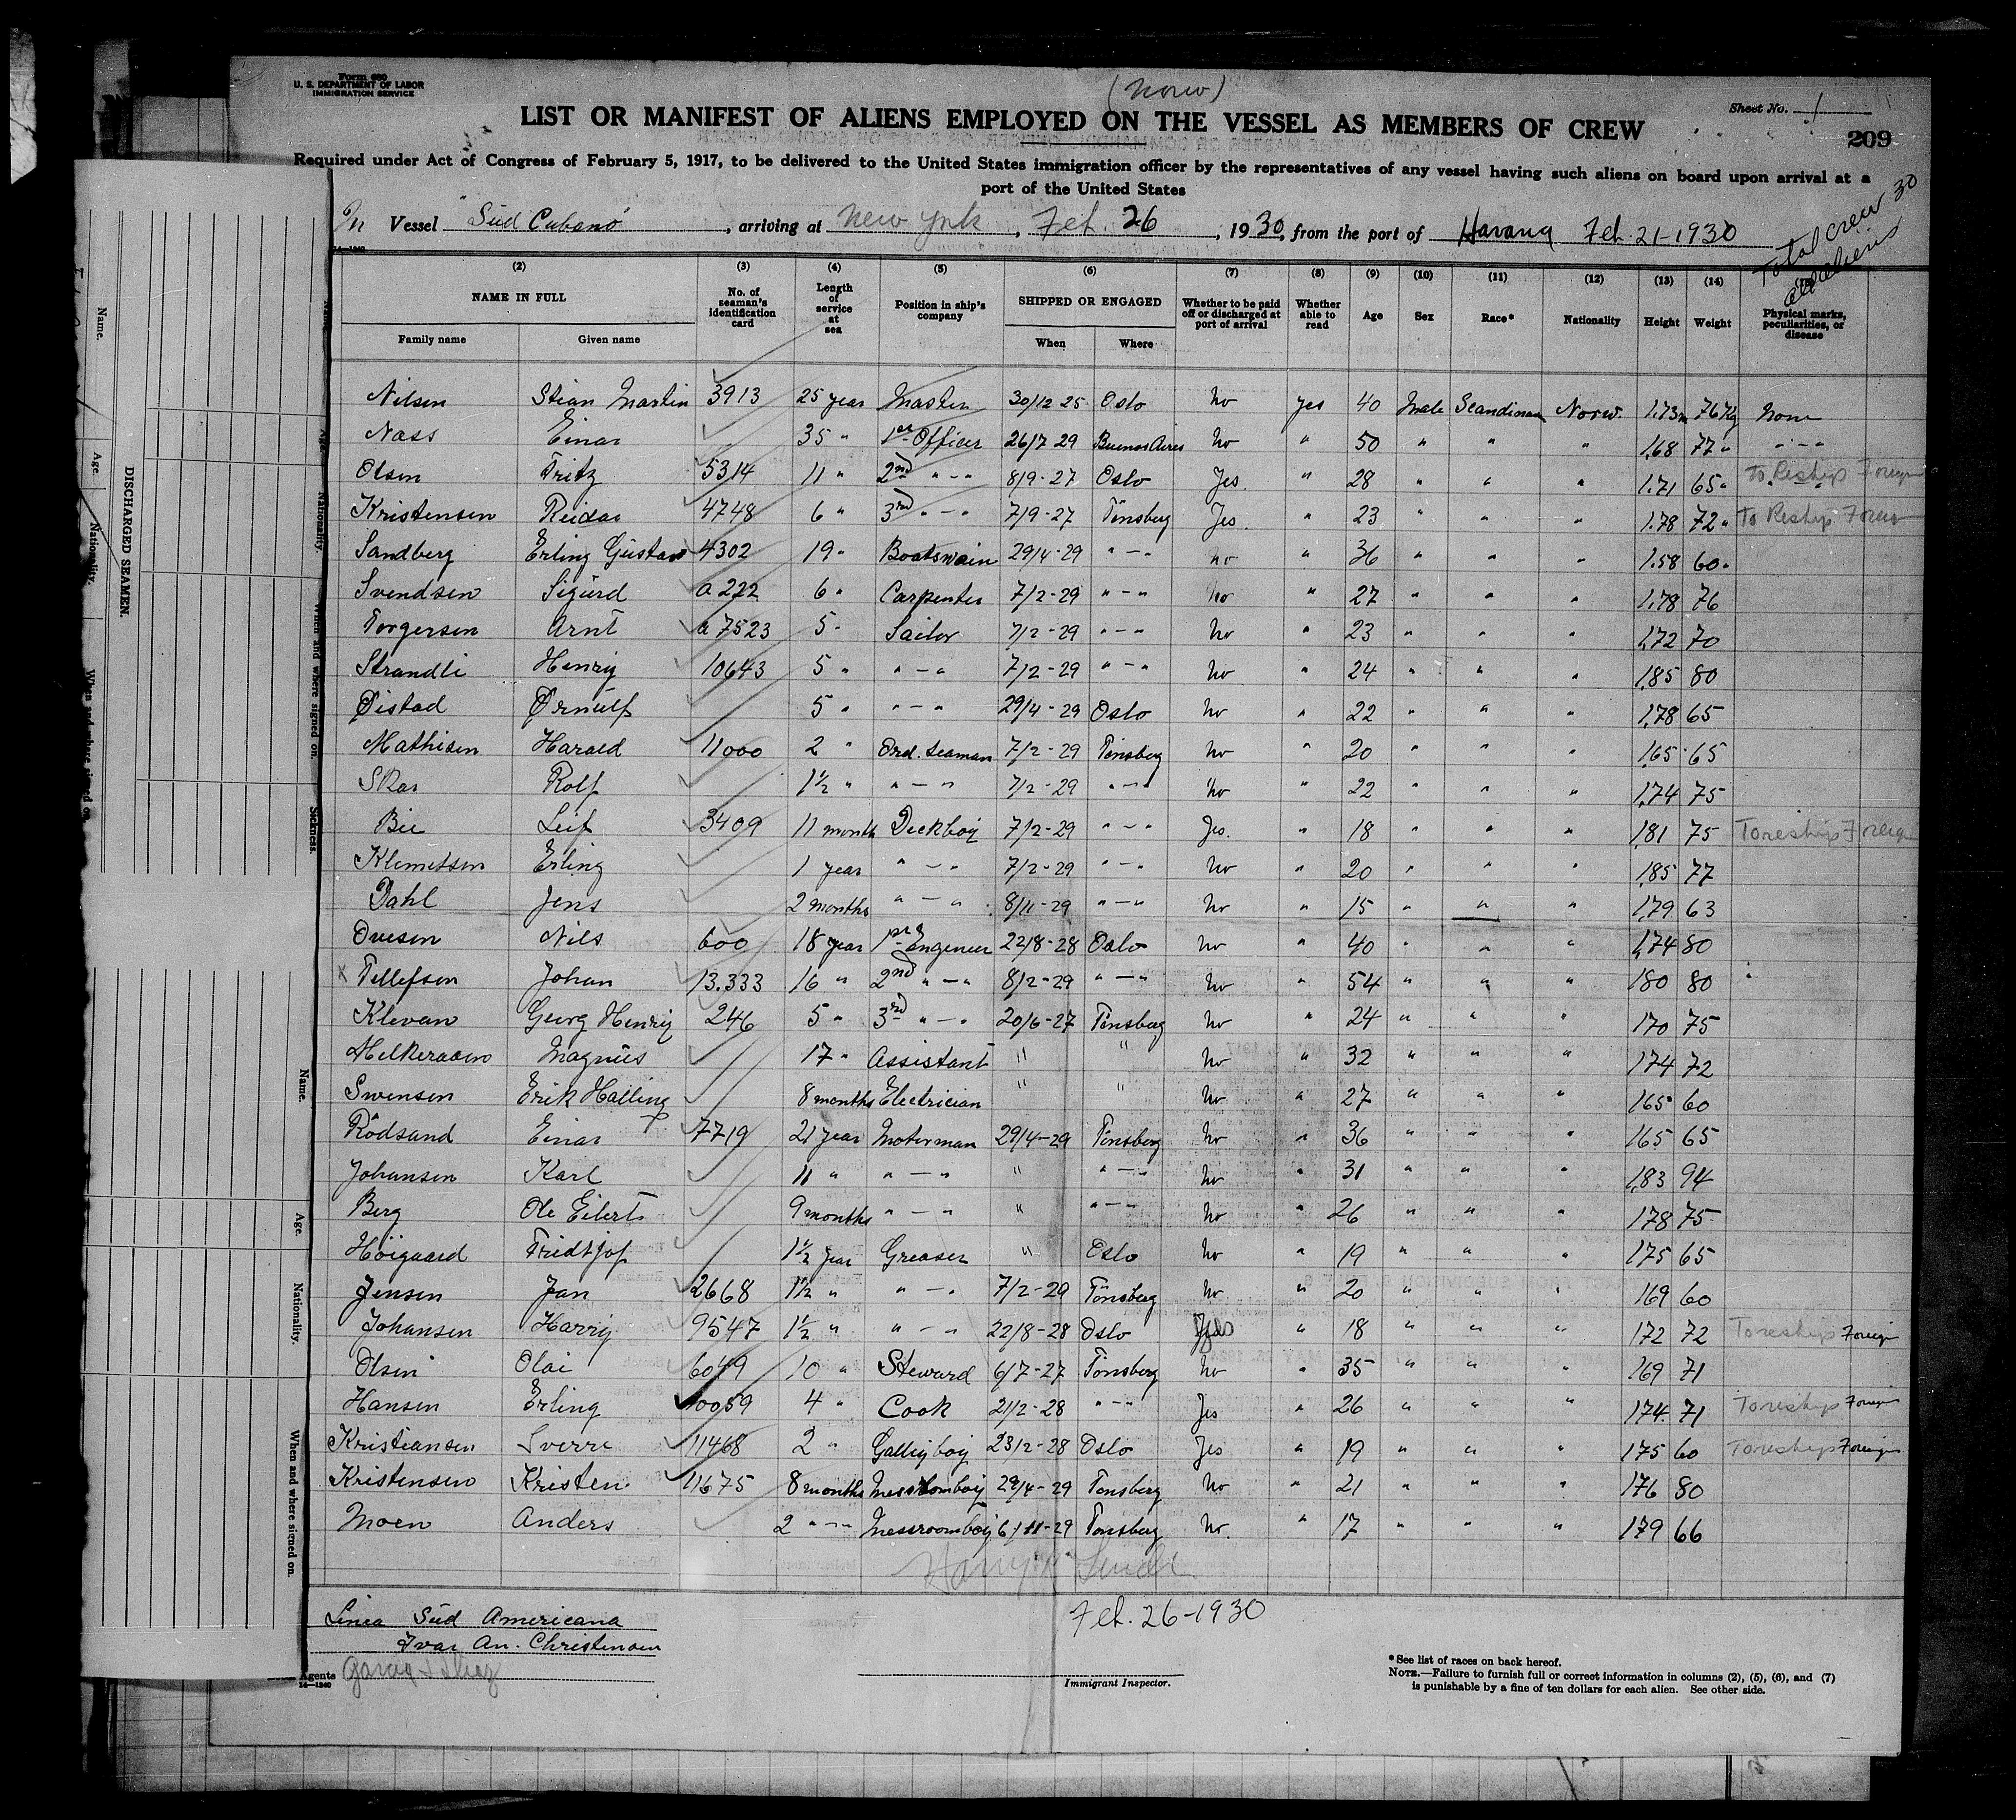 Form 680
U. S. DEPARTMENT OF LABOR
IMMIGRATION SERVICE
(Norw)
Sheet No. 1
LIST OR MANIFEST OF ALIENS EMPLOYED ON THE VESSEL AS MEMBERS OF CREW
209
Required under Act of Congress of February 5, 1917, to be delivered to the United States immigration officer by the representatives of any vessel having such aliens on board upon arrival at a
port of the United States
Total crew 30
all aliens
Vessel "Süd Cubano", arriving at New York, Feb. 26, 1930, from the port of Havana Feb. 21-1930
14—1240
(2) (3) (4) (5) (6) (7) (8) (9) (10) (11) (12) (13) (14)
NAME IN FULL No. of seaman's identification card Length of service at sea Position in ship's company SHIPPED OR ENGAGED Whether to be paid off or discharged at port of arrival Whether able to read Age Sex Race* Nationality Height Weight Physical marks, peculiarities, or disease
Family name Given name When Where
Nilsen Stian Martin 3913 25 year Master 30/12 25 Oslo No yes 40 Male Scandinav Norw. 1.73m 76 Kg None
Nass Einar 35 " 1st Officer 26/7 29 Buenos Aires No " 50 " " " 1.68 77 " " - "
Olsen Fritz 5314 11 " 2nd " - " 8/9-27 Oslo Yes. " 28 " " " 1.71 65 " To Reship Foreign
Kristensen Reidar 4748 6 " 3rd " - " 7/9-27 Tönsberg Yes. " 23 " " " 1.78 72 " To Reship Foreign
Sandberg Erling Gustav 4302 19 " Boatswain 29/4-29 " - " no " 36 " " " 1.58 60 "
Svendsen Sigurd a 222 6 " Carpenter 7/2-29 " - " No " 27 " " " 1.78 76
Torgersen Arnt a 7523 5 " Sailor 7/2-29 " - " No " 23 " " " 1.72 70
Strandli Henry 10643 5 " " - " 7/2-29 " - " No " 24 " " " 1.85 80
Øistad Ørnulf 5 " " - " 29/4-29 Oslo No " 22 " " " 1.78 65
Mathisen Harald 11000 2 " Ord. Seaman 7/2-29 Tönsberg No " 20 " " " 1.65 65
Skar Rolf 1½ " " - " 7/2-29 " - " No " 22 " " " 1.74 75
Bie Leif 3409 11 month Deckboy 7/2-29 " - " Yes. " 18 " " " 1.81 75 To reship Foreign
Klemetsen Erling 1 year " - " 7/2-29 " - " No " 20 " " " 1.85 77
Dahl Jens 2 months " - " 8/11-29 " - " No " 15 " " " 1.79 63
Ovesen Nils 600 18 year 1st Engeneer 22/8-28 Oslo No " 40 " " " 1.74 80
x Tellefsen Johan 13.333 16 " 2nd " - " 8/2-29 " - " No " 54 " " " 180 80
Klevan Georg Henry 246 5 " 3rd " - " 20/6-27 Tönsberg No " 24 " " " 170 75
Melkeraaen Magnus 17 " Assistant " " No " 32 " " " 174 72
Swensen Erik Halling 8 months Electrician " " No " 27 " " " 165 60
Rödsand Einar 7719 21 year Moterman 29/4-29 Tönsberg No " 36 " " " 165 65
Johansen Karl 11 " " - " " " - " No " 31 " " " 1.83 94
Berg Ole Eilert 9 months " - " " " - " No " 26 " " " 178 75
Höigaard Fridtjof 1½ year Greaser " Oslo No " 19 " " " 175 65
Jensen Jan 2668 1½ " " - " 7/2-29 Tönsberg No " 20 " " " 169 60
Johansen Harry 9547 1½ " " - " 22/8-28 Oslo Yes " 18 " " " 172 72 To reship Foreign
Olsen Olai 6049 10 " Steward 6/7-27 Tönsberg No " 35 " " " 169 71
Hansen Erling 10059 4 " Cook 21/2-28 " - " Yes " 26 " " " 174 71 To reship Foreign
Kristiansen Sverre 11468 2 " Galleyboy 23/2-28 Oslo Yes " 19 " " " 175 60 To reship Foreign
Kristensen Kristen 11675 8 months Messroomboy 29/4-29 Tönsberg No " 21 " " " 176 80
Moen Anders 2 " - " Messroomboy 6/11-29 Tönsberg No. " 17 " " " 179 66
Linea Süd Americana
Ivar An. Christensen
Agents Garcia &
14—1240
Feb. 26-1930
Immigrant Inspector.
*See list of races on back hereof.
NOTE.—Failure to furnish full or correct information in columns (2), (5), (6), and (7)
is punishable by a fine of ten dollars for each alien. See other side.
DISCHARGED SEAMEN.
Name.
Age.
Nationality.
When and where signed on.
Sickness.
Name.
Age.
Nationality.
When and where signed on.